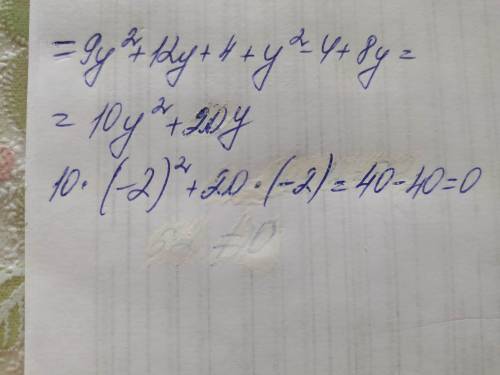 = 9y² + 12y + 4 + y² - 4 + 8y =
= 10y² + 20y
10 · (-2)² + 20 · (-2) = 40 - 40 = 0